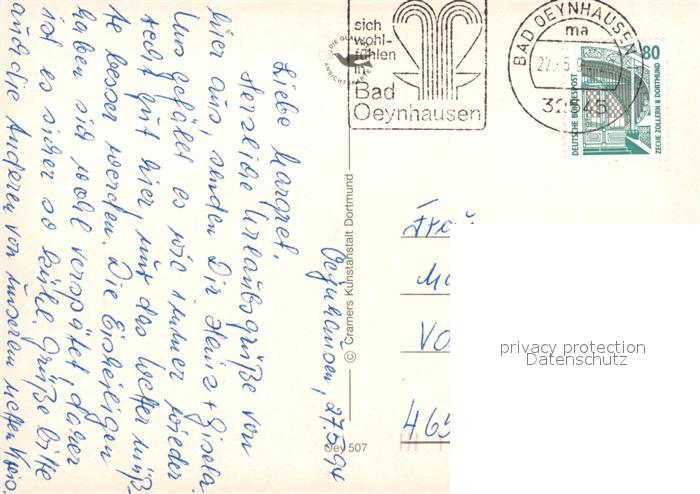 Oeynhausen, 27.5.94
Liebe Margret.
Herzliche Urlaubsgrüße von
hier aus, senden Dir Heinz + Gisela
Uns gefällt es wie immer wieder
recht gut hier, nur das Wetter müß-
te besser werden. Die Eisheiligen
haben sich wohl verspätet, daher
ist es sicher so kühl. Grüße bitte
auch die Anderen von unserem netten Kreis
sich
wohl-
fühlen
in
Bad
Oeynhausen
DIE GLAUB
ANSICHTSKARTE
BAD OEYNHAUSEN
ma
27.-5.9
32545
80
DEUTSCHE BUNDESPOST
ZECHE ZOLLERN II DORTMUND
© Cramers Kunstanstalt Dortmund
Oey 507
Frau
Ma
Vo
465
privacy protection
Datenschutz